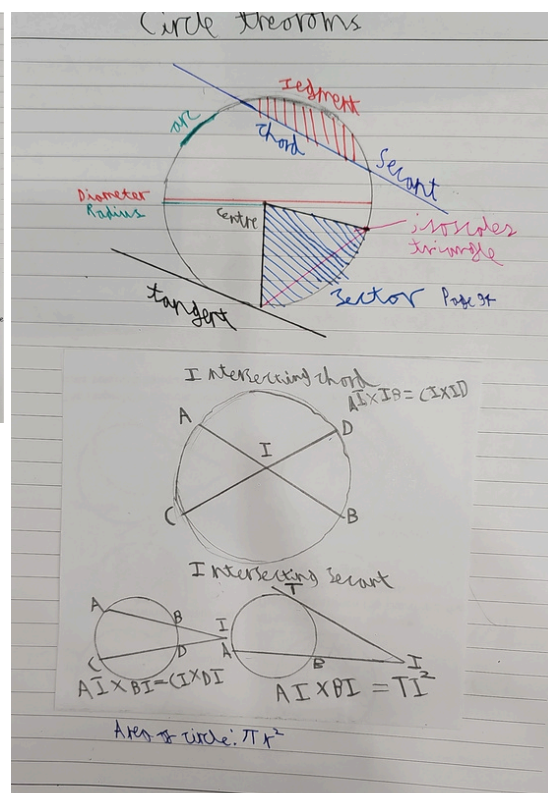 Circle theoroms
Segment
arc
Chord
Secant
Diameter
Radius
Centre
isosceles
triangle
tangent
Sector Page 94
Intersecting chord
AI×IB=CI×ID
A
D
I
C
B
Intersecting Secant
T
A
B
I
A
C
D
B
I
AI×BI=CI×DI
AI×BI=TI²
Area of circle: πr²